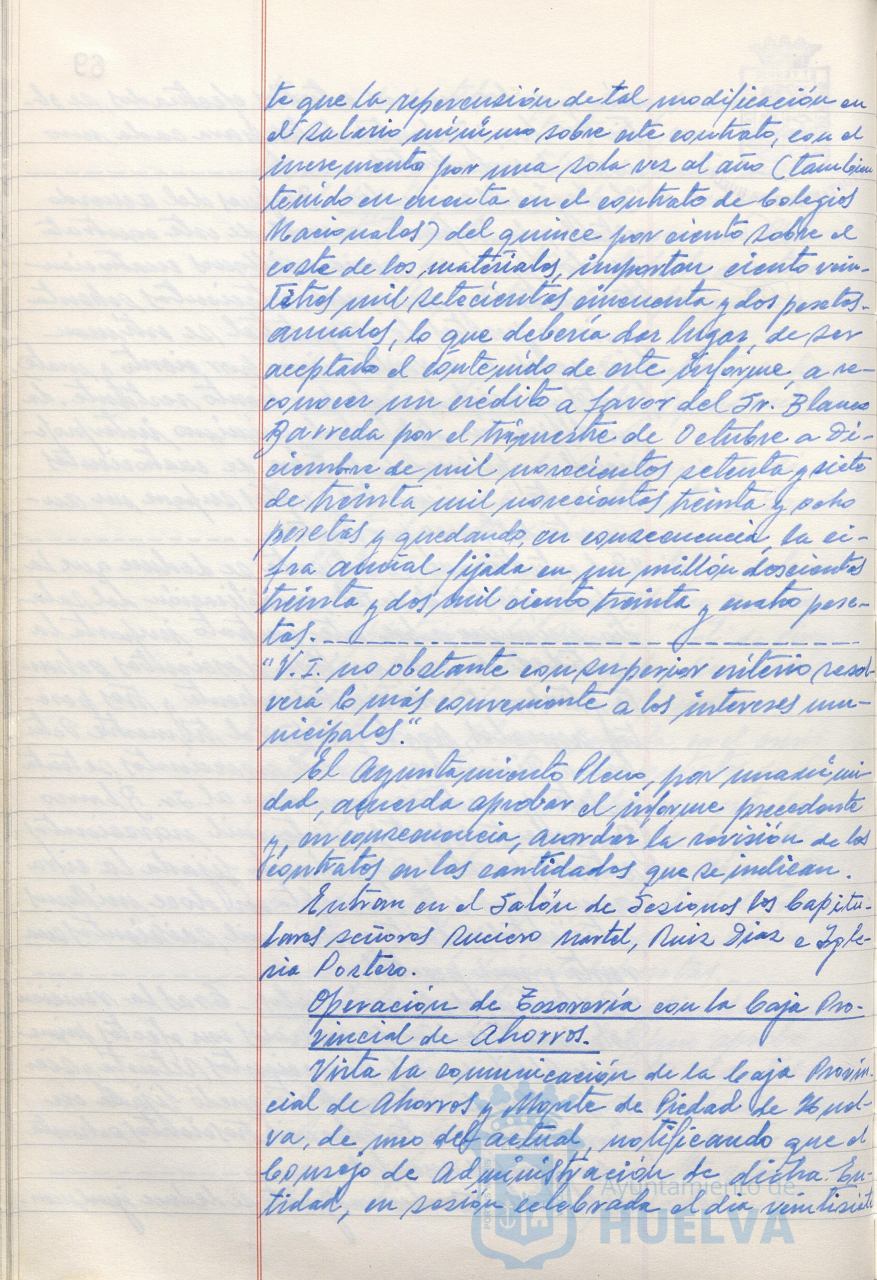 te que la repercusión de tal modificación en
el salario mínimo sobre este contrato, con el
incremento por una sola vez al año (también
tenido en cuenta en el contrato de Colegios
Nacionales) del quince por ciento sobre el
coste de los materiales, importan ciento vein-
titres mil setecientas cincuenta y dos pesetas
anuales, lo que debería dar lugar, de ser
aceptado el contenido de este informe, a re-
conocer un crédito a favor del Sr. Blanco
Barreda por el trimestre de Octubre a Di-
ciembre de mil novecientos setenta y siete
de treinta mil novecientas treinta y ocho
pesetas y quedando, en consecuencia, la ci-
fra anual fijada en un millón doscientas
treinta y dos mil ciento treinta y cuatro pese-
tas.
"V.I. no obstante con superior criterio resol-
verá lo más conveniente a los intereses mu-
nicipales."
El Ayuntamiento Pleno, por unanimi-
dad, acuerda aprobar el informe precedente
y, en consecuencia, acordar la revisión de los
contratos en las cantidades que se indican.
Entran en el Salón de Sesiones los Capitu-
lares señores Suciero Martel, Ruiz Diaz e Igle-
sia Portero.
Operación de Tesorería con la Caja Pro-
vincial de Ahorros.
Vista la comunicación de la Caja Provin-
cial de Ahorros y Monte de Piedad de Huel-
va, de uno del actual, notificando que el
Consejo de Administración de dicha En-
tidad, en sesión celebrada el día veintisiete
Ayuntamiento de
HUELVA